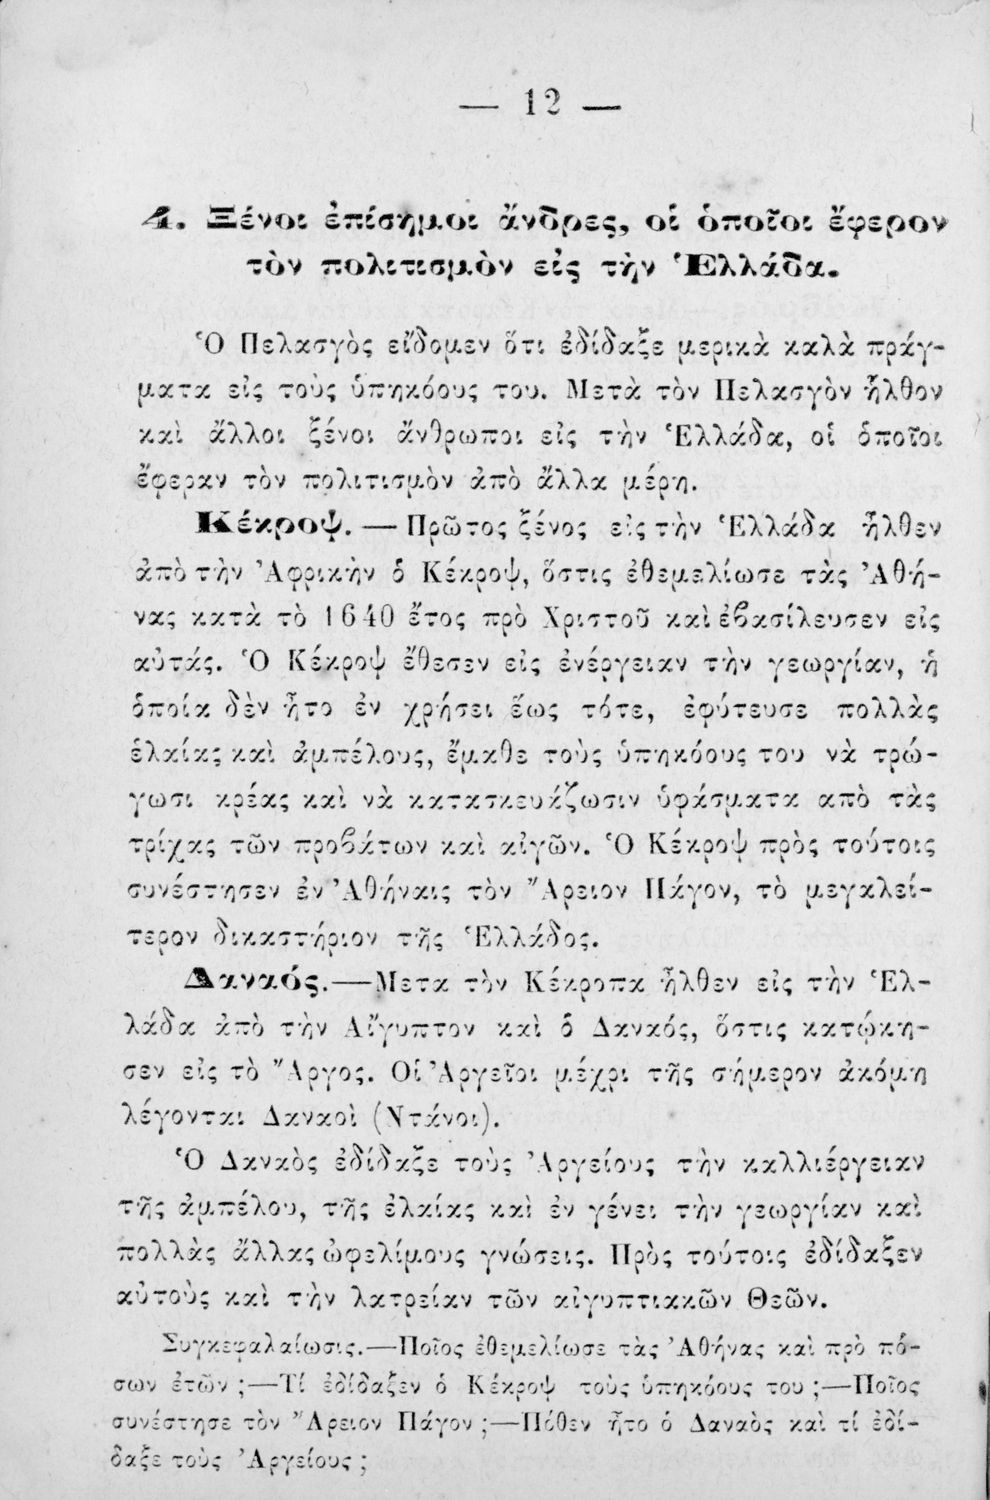 — 12 —
4. Ξένοι ἐπίσημοι ἄνδρες, οἱ ὁποῖοι ἔφερον
τὸν πολιτισμὸν εἰς τὴν Ἑλλάδα.
Ὁ Πελασγὸς εἴδομεν ὅτι ἐδίδαξε μερικὰ καλὰ πράγ-
ματα εἰς τοὺς ὑπηκόους του. Μετὰ τὸν Πελασγὸν ἦλθον
καὶ ἄλλοι ξένοι ἄνθρωποι εἰς τὴν Ἑλλάδα, οἱ ὁποῖοι
ἔφεραν τὸν πολιτισμὸν ἀπὸ ἄλλα μέρη.
Κέκροψ. — Πρῶτος ξένος εἰς τὴν Ἑλλάδα ἦλθεν
ἀπὸ τὴν Ἀφρικὴν ὁ Κέκροψ, ὅστις ἐθεμελίωσε τὰς Ἀθή-
νας κατὰ τὸ 1640 ἔτος πρὸ Χριστοῦ καὶ ἐβασίλευσεν εἰς
αὐτάς. Ὁ Κέκροψ ἔθεσεν εἰς ἐνέργειαν τὴν γεωργίαν, ἡ
ὁποία δὲν ἦτο ἐν χρήσει ἕως τότε, ἐφύτευσε πολλὰς
ἐλαίας καὶ ἀμπέλους, ἔμαθε τοὺς ὑπηκόους του νὰ τρώ-
γωσι κρέας καὶ νὰ κατασκευάζωσιν ὑφάσματα απὸ τὰς
τρίχας τῶν προβάτων καὶ αἰγῶν. Ὁ Κέκροψ πρὸς τούτοις
συνέστησεν ἐν Ἀθήναις τὸν Ἄρειον Πάγον, τὸ μεγαλεί-
τερον δικαστήριον τῆς Ἑλλάδος.
Δαναός.—Μετα τὸν Κέκροπα ἦλθεν εἰς τὴν Ἑλ-
λάδα ἀπὸ τὴν Αἴγυπτον καὶ ὁ Δαναός, ὅστις κατῴκη-
σεν εἰς τὸ Ἄργος. Οἱ Ἀργεῖοι μέχρι τῆς σήμερον ἀκόμη
λέγονται Δαναοὶ (Ντάνοι).
Ὁ Δαναὸς ἐδίδαξε τοὺς Ἀργείους τὴν καλλιέργειαν
τῆς ἀμπέλου, τῆς ἐλαίας καὶ ἐν γένει τὴν γεωργίαν καὶ
πολλὰς ἄλλας ὠφελίμους γνώσεις. Πρὸς τούτοις ἐδίδαξεν
αὐτοὺς καὶ τὴν λατρείαν τῶν αἰγυπτιακῶν Θεῶν.
Συγκεφαλαίωσις.—Ποῖος ἐθεμελίωσε τὰς Ἀθήνας καὶ πρὸ πό-
σων ἐτῶν ;—Τί ἐδίδαξεν ὁ Κέκροψ τοὺς ὑπηκόους του ;—Ποῖος
συνέστησε τὸν Ἄρειον Πάγον ;—Πόθεν ἦτο ὁ Δαναὸς καὶ τί ἐδί-
δαξε τοὺς Ἀργείους ;